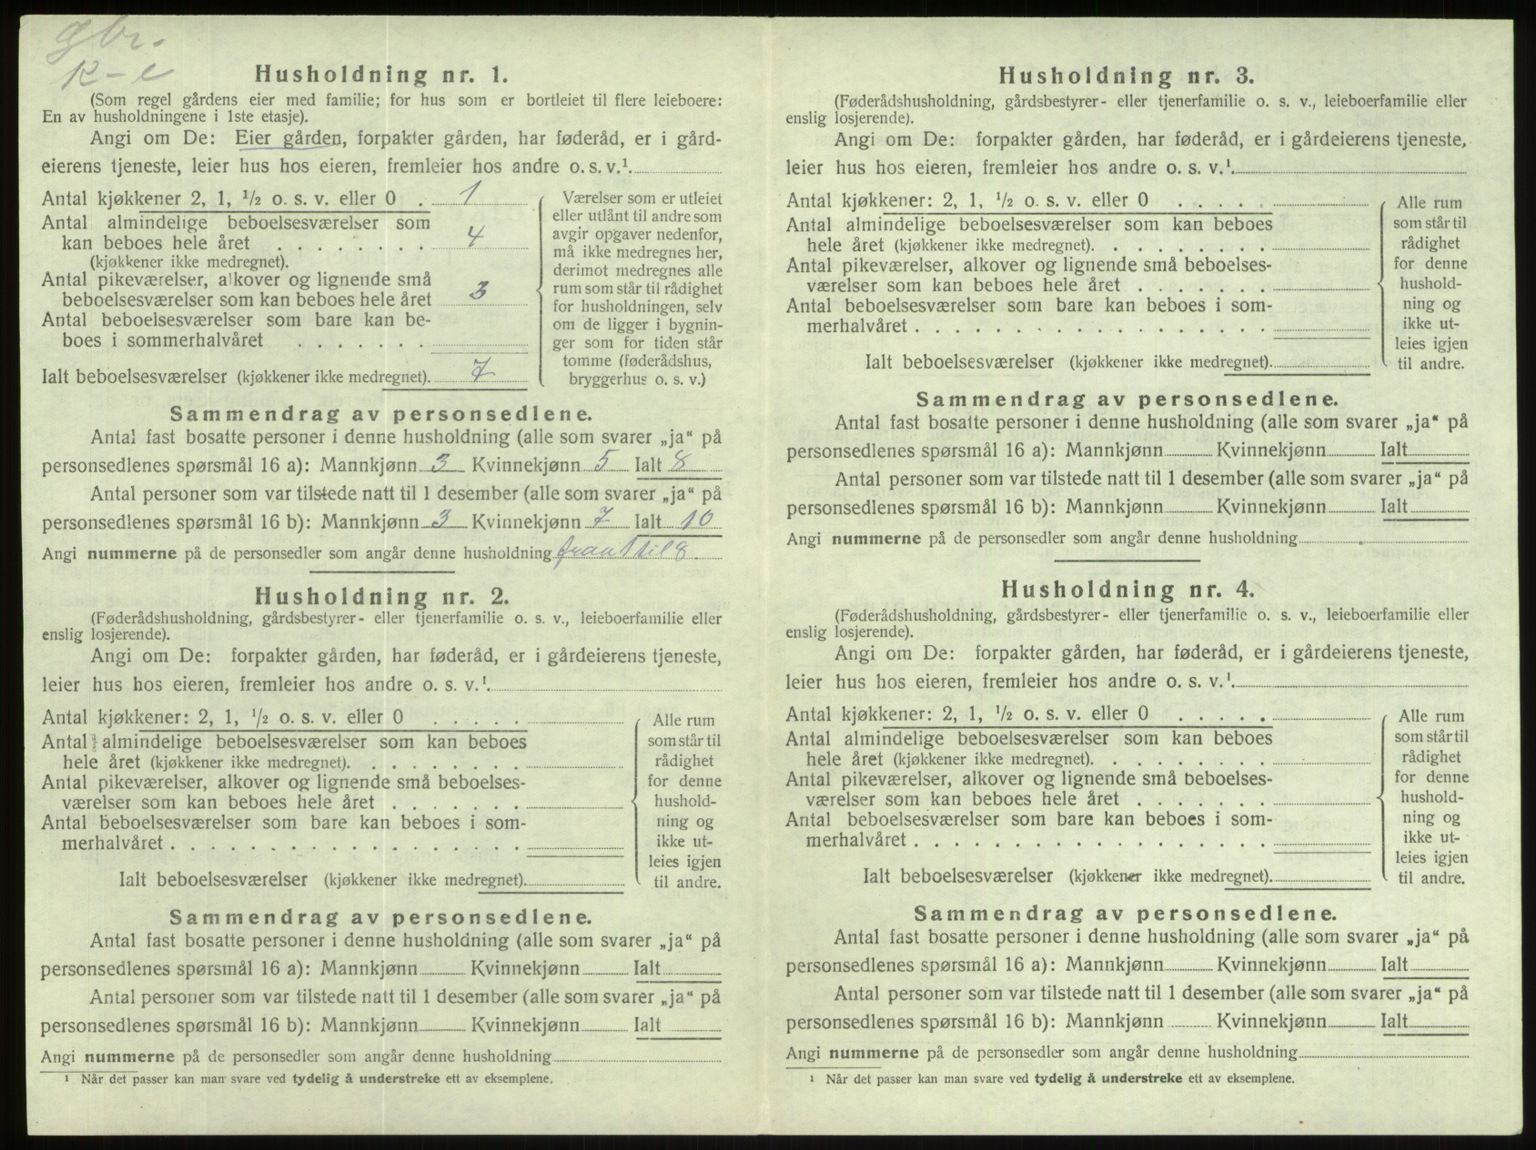 gbr.
K-e
Husholdning nr. 1.
(Som regel gårdens eier med familie; for hus som er bortleiet til flere leieboere:
En av husholdningene i 1ste etasje).
Angi om De: Eier gården, forpakter gården, har føderåd, er i gård-
eierens tjeneste, leier hus hos eieren, fremleier hos andre o. s. v.¹
Antal kjøkkener 2, 1, ½ o. s. v. eller 0 . 1
Antal almindelige beboelsesværelser som
kan beboes hele året . . . . . . . . 4
(kjøkkener ikke medregnet).
Antal pikeværelser, alkover og lignende små
beboelsesværelser som kan beboes hele året 3
Antal beboelsesværelser som bare kan be-
boes i sommerhalvåret . . . . . . .
Ialt beboelsesværelser (kjøkkener ikke medregnet). 7
Værelser som er utleiet
eller utlånt til andre som
avgir opgaver nedenfor,
må ikke medregnes her,
derimot medregnes alle
rum som står til rådighet
for husholdningen, selv
om de ligger i bygnin-
ger som for tiden står
tomme (føderådshus,
bryggerhus o. s. v.)
Sammendrag av personsedlene.
Antal fast bosatte personer i denne husholdning (alle som svarer „ja“ på
personsedlenes spørsmål 16 a): Mannkjønn 3 Kvinnekjønn 5 Ialt 8
Antal personer som var tilstede natt til 1 desember (alle som svarer „ja“ på
personsedlenes spørsmål 16 b): Mannkjønn 3 Kvinnekjønn 7 Ialt 10
Angi nummerne på de personsedler som angår denne husholdning fra 1 til 8.
Husholdning nr. 2.
(Føderådshusholdning, gårdsbestyrer- eller tjenerfamilie o. s. v., leieboerfamilie eller
enslig losjerende).
Angi om De: forpakter gården, har føderåd, er i gårdeierens tjeneste,
leier hus hos eieren, fremleier hos andre o. s. v.¹
Antal kjøkkener: 2, 1, ½ o. s. v. eller 0 . . . . .
Antal almindelige beboelsesværelser som kan beboes
hele året (kjøkkener ikke medregnet). . . . . . . .
Antal pikeværelser, alkover og lignende små beboelses-
værelser som kan beboes hele året . . . . . . .
Antal beboelsesværelser som bare kan beboes i som-
merhalvåret . . . . . . . . . . . . . . . . . .
Ialt beboelsesværelser (kjøkkener ikke medregnet).
Alle rum
som står til
rådighet
for denne
hushold-
ning og
ikke ut-
leies igjen
til andre.
Sammendrag av personsedlene.
Antal fast bosatte personer i denne husholdning (alle som svarer „ja“ på
personsedlenes spørsmål 16 a): Mannkjønn Kvinnekjønn Ialt
Antal personer som var tilstede natt til 1 desember (alle som svarer „ja“ på
personsedlenes spørsmål 16 b): Mannkjønn Kvinnekjønn Ialt
Angi nummerne på de personsedler som angår denne husholdning
¹ Når det passer kan man svare ved tydelig å understreke ett av eksemplene.
Husholdning nr. 3.
(Føderådshusholdning, gårdsbestyrer- eller tjenerfamilie o. s. v., leieboerfamilie eller
enslig losjerende).
Angi om De: forpakter gården, har føderåd, er i gårdeierens tjeneste,
leier hus hos eieren, fremleier hos andre o. s. v.¹
Antal kjøkkener: 2, 1, ½ o. s. v. eller 0 . . . . .
Antal almindelige beboelsesværelser som kan beboes
hele året (kjøkkener ikke medregnet). . . . . . . .
Antal pikeværelser, alkover og lignende små beboelses-
værelser som kan beboes hele året . . . . . . .
Antal beboelsesværelser som bare kan beboes i som-
merhalvåret . . . . . . . . . . . . . . . . . .
Ialt beboelsesværelser (kjøkkener ikke medregnet).
Alle rum
som står til
rådighet
for denne
hushold-
ning og
ikke ut-
leies igjen
til andre.
Sammendrag av personsedlene.
Antal fast bosatte personer i denne husholdning (alle som svarer „ja“ på
personsedlenes spørsmål 16 a): Mannkjønn Kvinnekjønn Ialt
Antal personer som var tilstede natt til 1 desember (alle som svarer „ja“ på
personsedlenes spørsmål 16 b): Mannkjønn Kvinnekjønn Ialt
Angi nummerne på de personsedler som angår denne husholdning
Husholdning nr. 4.
(Føderådshusholdning, gårdsbestyrer- eller tjenerfamilie o. s. v., leieboerfamilie eller
enslig losjerende).
Angi om De: forpakter gården, har føderåd, er i gårdeierens tjeneste,
leier hus hos eieren, fremleier hos andre o. s. v.¹
Antal kjøkkener: 2, 1, ½ o. s. v. eller 0 . . . . .
Antal almindelige beboelsesværelser som kan beboes
hele året (kjøkkener ikke medregnet). . . . . . . .
Antal pikeværelser, alkover og lignende små beboelses-
værelser som kan beboes hele året . . . . . . .
Antal beboelsesværelser som bare kan beboes i som-
merhalvåret . . . . . . . . . . . . . . . . . .
Ialt beboelsesværelser (kjøkkener ikke medregnet).
Alle rum
som står til
rådighet
for denne
hushold-
ning og
ikke ut-
leies igjen
til andre.
Sammendrag av personsedlene.
Antal fast bosatte personer i denne husholdning (alle som svarer „ja“ på
personsedlenes spørsmål 16 a): Mannkjønn Kvinnekjønn Ialt
Antal personer som var tilstede natt til 1 desember (alle som svarer „ja“ på
personsedlenes spørsmål 16 b): Mannkjønn Kvinnekjønn Ialt
Angi nummerne på de personsedler som angår denne husholdning
¹ Når det passer kan man svare ved tydelig å understreke ett av eksemplene.